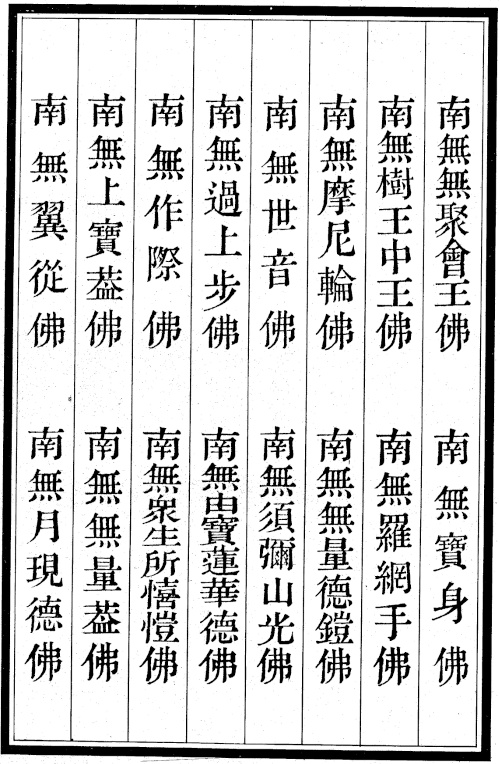 南無無聚會王佛
南無寶身佛
南無樹王中王佛
南無羅網手佛
南無摩尼輪佛
南無無量德鎧佛
南無世音佛
南無須彌山光佛
南無過上步佛
南無由寶蓮華德佛
南無作際佛
南無衆生所憘愷佛
南無上寶葢佛
南無無量葢佛
南無翼從佛
南無月現德佛